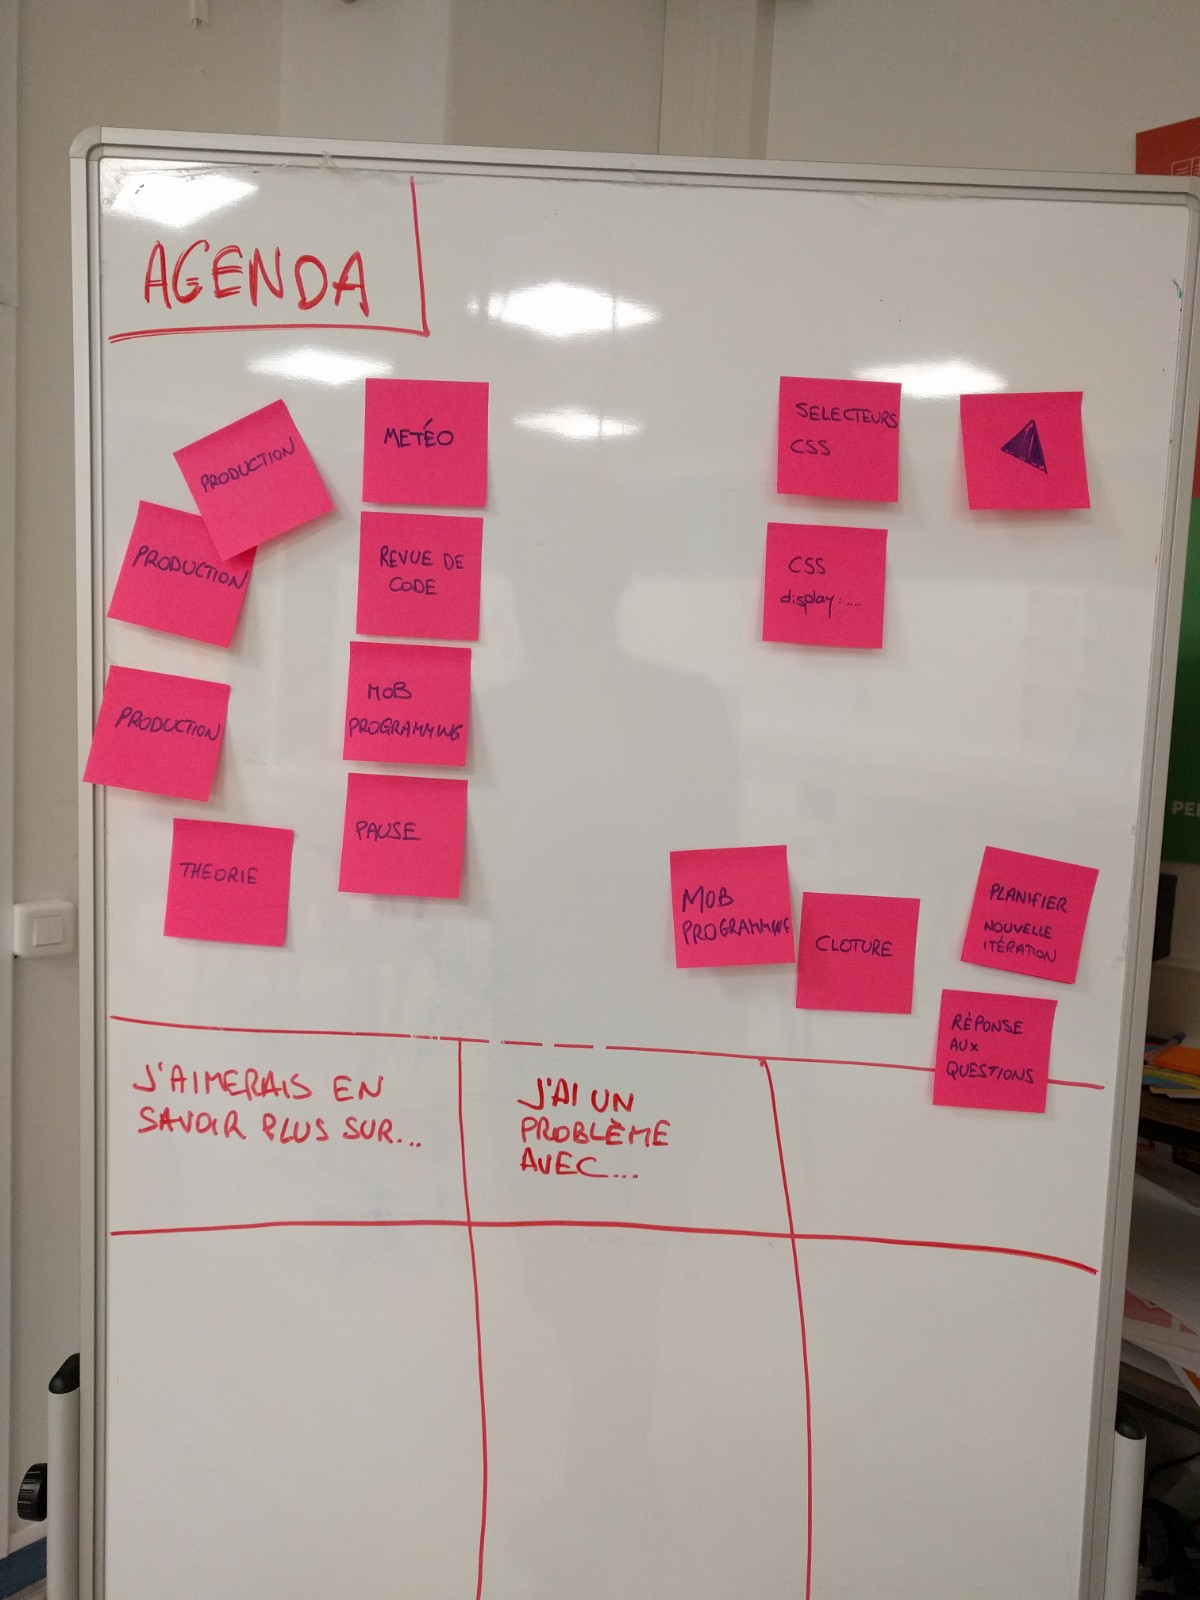 AGENDA
PRODUCTION
PRODUCTION
PRODUCTION
THEORIE
METÉO
REVUE DE
CODE
MOB
PROGRAMMING
PAUSE
SELECTEURS
CSS
CSS
display: ....
MOB
PROGRAMMING
CLOTURE
PLANIFIER
NOUVELLE
ITÉRATION
RÉPONSE
AUX
QUESTIONS
J'AIMERAIS EN
SAVOIR PLUS SUR...
J'AI UN
PROBLÈME
AVEC...